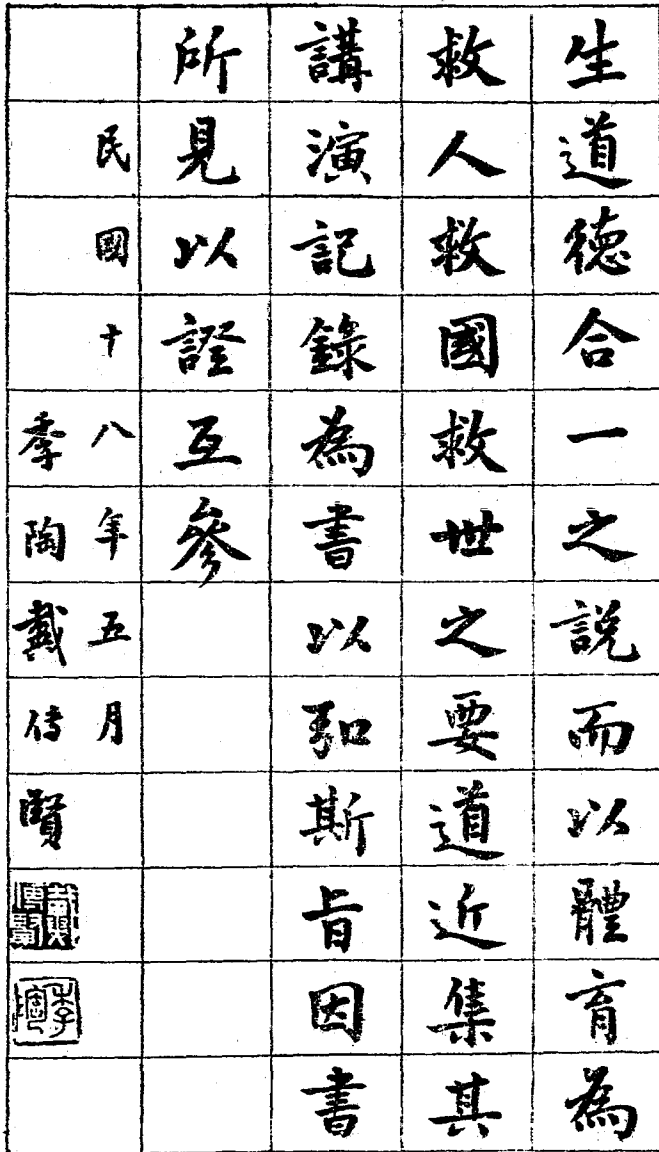 生道德合一之說而以體育為
救人救國救世之要道近集其
講演記錄為書以弘斯旨因書
所見以證互參
民國十八年五月
季陶戴傳賢
戴傳賢
季陶